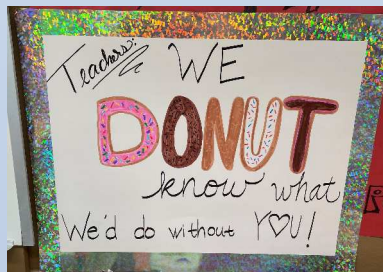 Teachers:
WE
DONUT
know what
We'd do without YOU!